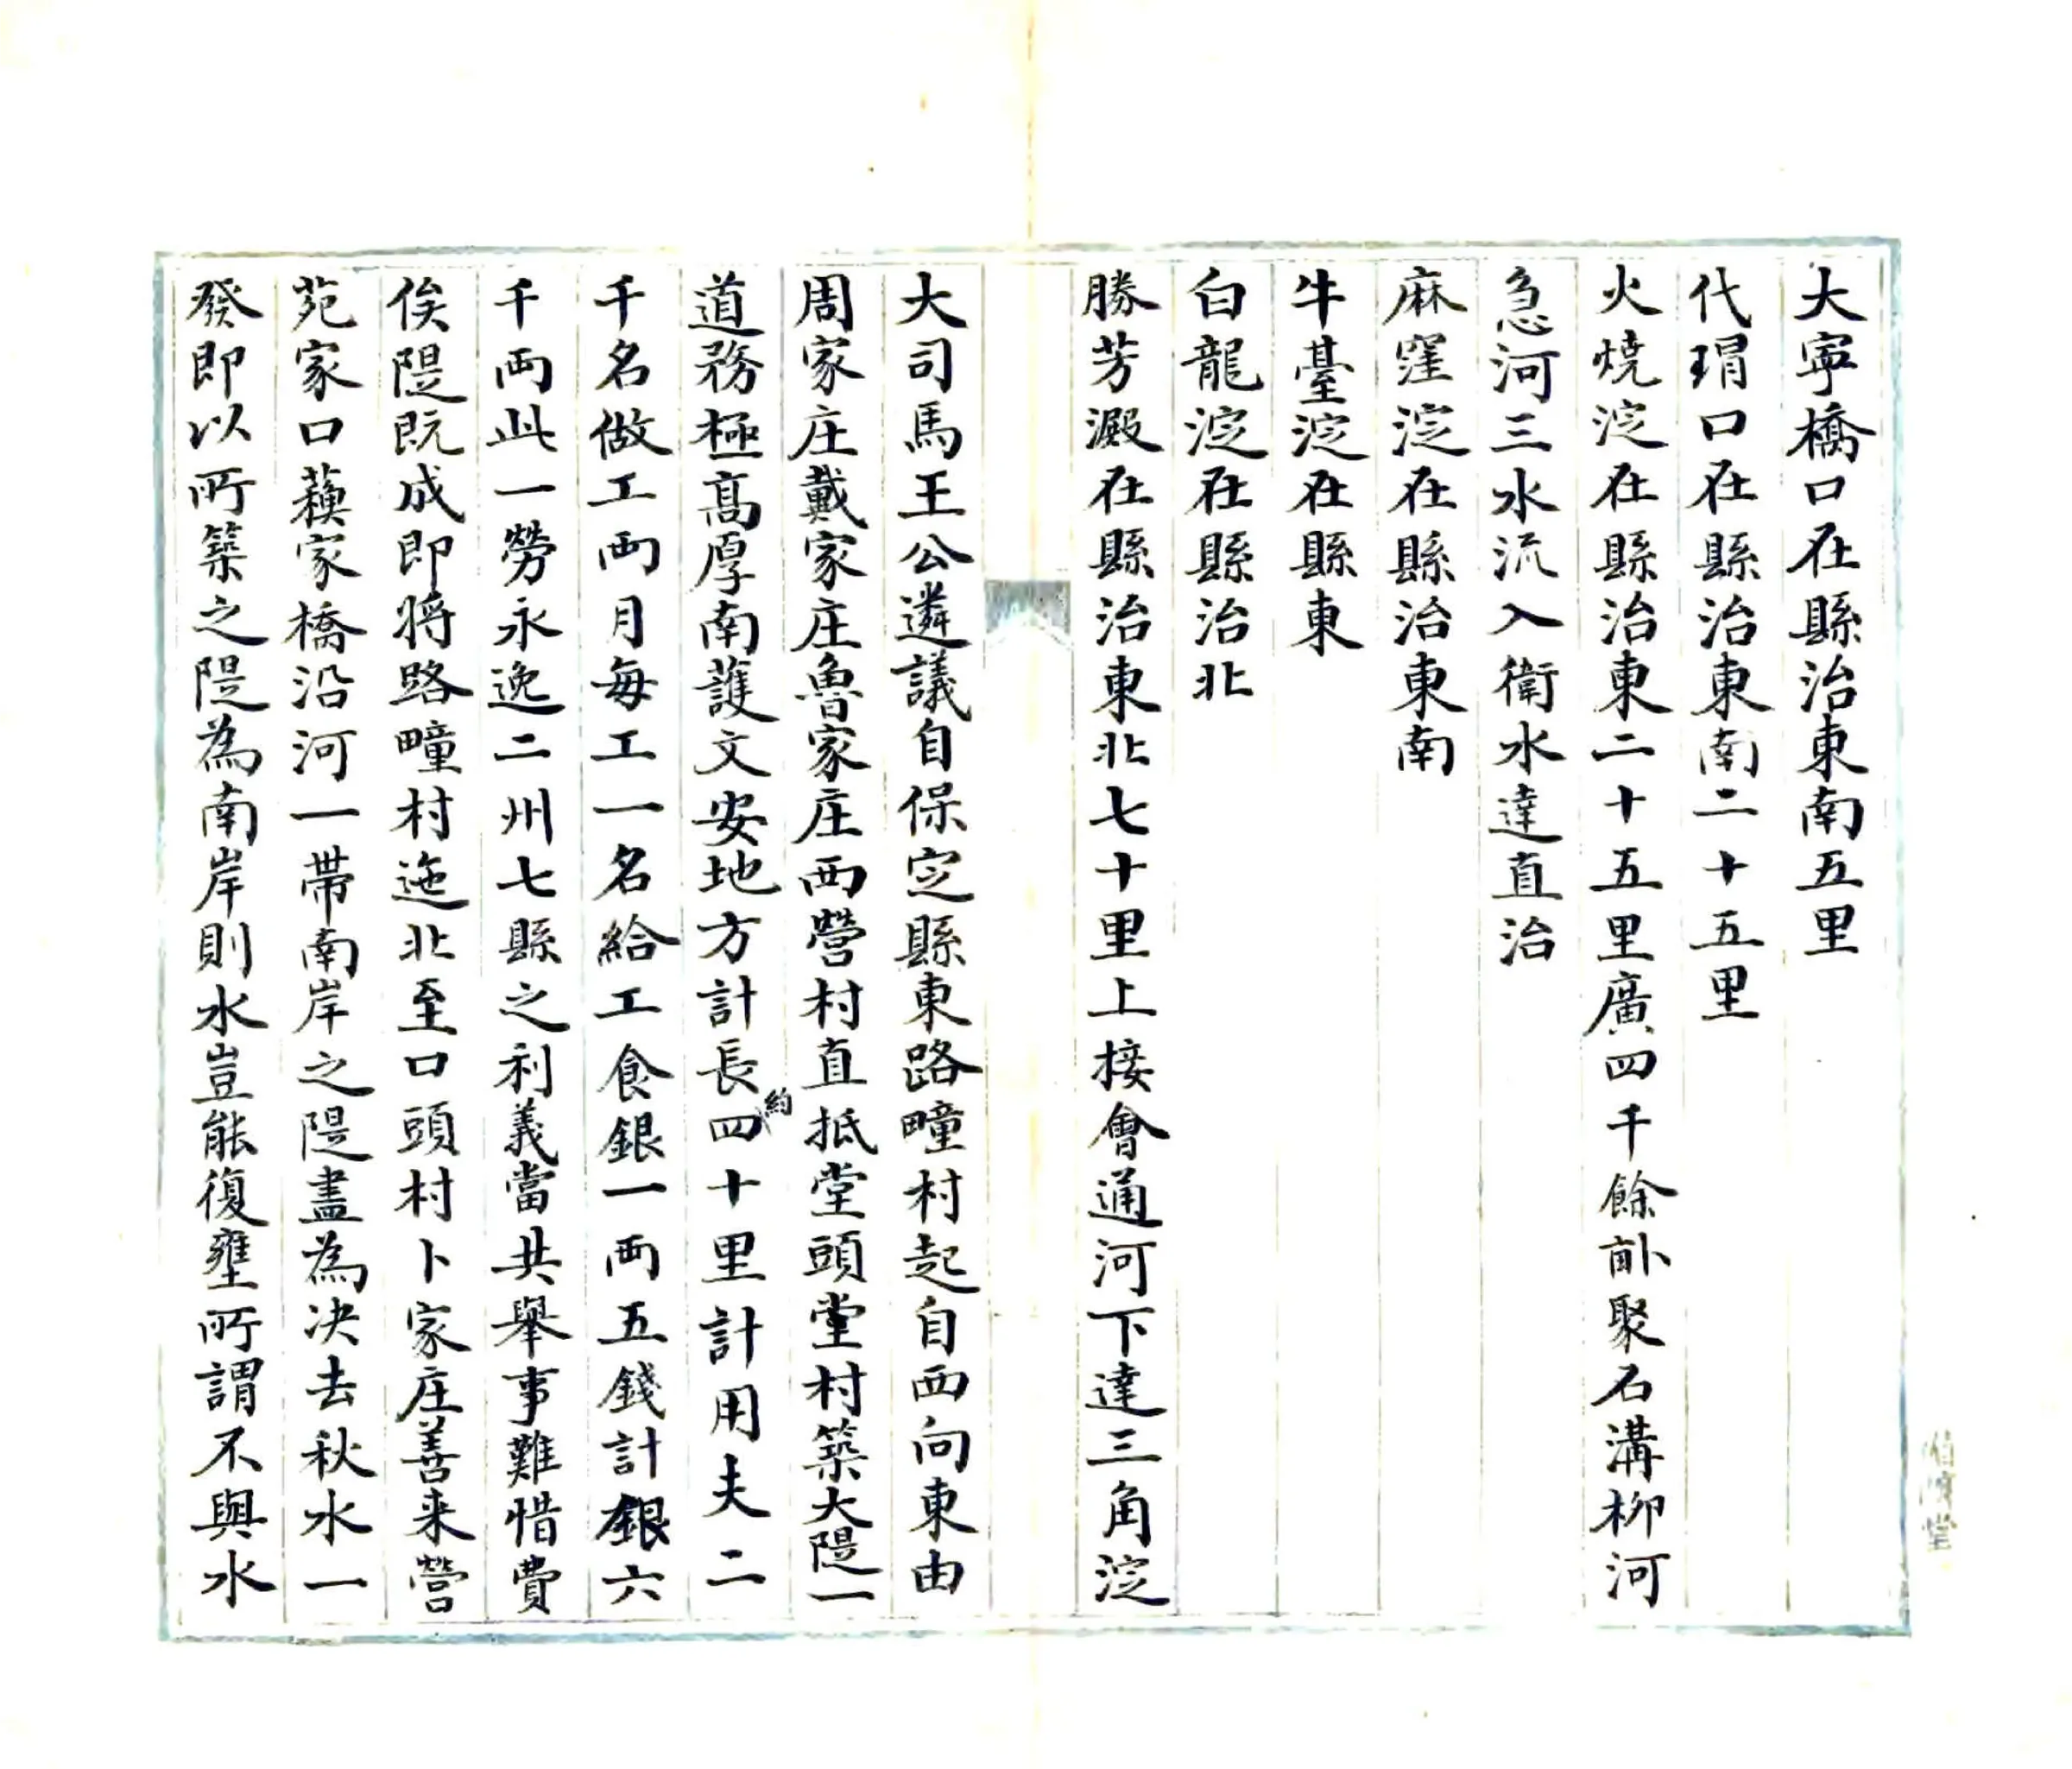 大寜橋口在縣治東南五里
代瑁口在縣治東南二十五里
火燒淀在縣治東二十五里廣四千餘畝聚石溝柳河
急河三水流入衛水達直治
麻窪淀在縣治東南
牛臺淀在縣東
白龍淀在縣治北
勝芳澱在縣治東北七十里上接會通河下達三角淀
大司馬王公遴議自保定縣東路疃村起自西向東由
周家庄戴家庄魯家庄西營村直抵堂頭堂村築大隄一
道務極髙厚南護文安地方計長約四十里計用夫二
千名做工兩月每工一名給工食銀一兩五錢計銀六
千兩此一勞永逸二州七縣之利義當共舉事難惜費
俟隄既成即將路疃村迤北至口頭村卜家庄善来營
苑家口蘓家橋沿河一帶南岸之隄盡為决去秋水一
發即以所築之隄為南岸則水豈能復壅所謂不與水